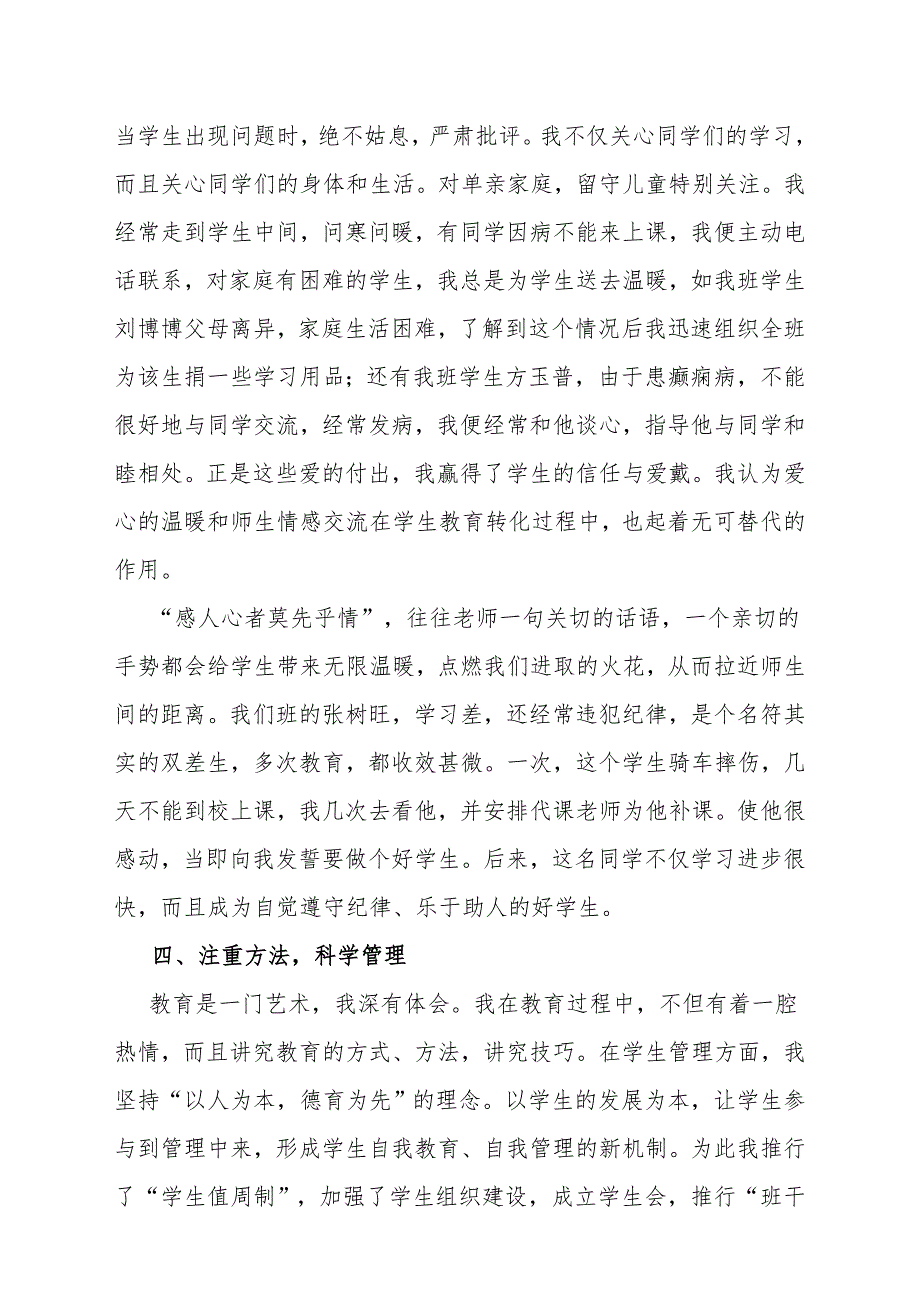 当学生出现问题时，绝不姑息，严肃批评。我不仅关心同学们的学习，
而且关心同学们的身体和生活。对单亲家庭，留守儿童特别关注。我
经常走到学生中间，问寒问暖，有同学因病不能来上课，我便主动电
话联系，对家庭有困难的学生，我总是为学生送去温暖，如我班学生
刘博博父母离异，家庭生活困难，了解到这个情况后我迅速组织全班
为该生捐一些学习用品；还有我班学生方玉普，由于患癫痫病，不能
很好地与同学交流，经常发病，我便经常和他谈心，指导他与同学和
睦相处。正是这些爱的付出，我赢得了学生的信任与爱戴。我认为爱
心的温暖和师生情感交流在学生教育转化过程中，也起着无可替代的
作用。
“感人心者莫先乎情”，往往老师一句关切的话语，一个亲切的
手势都会给学生带来无限温暖，点燃我们进取的火花，从而拉近师生
间的距离。我们班的张树旺，学习差，还经常违犯纪律，是个名符其
实的双差生，多次教育，都收效甚微。一次，这个学生骑车摔伤，几
天不能到校上课，我几次去看他，并安排代课老师为他补课。使他很
感动，当即向我发誓要做个好学生。后来，这名同学不仅学习进步很
快，而且成为自觉遵守纪律、乐于助人的好学生。
四、注重方法，科学管理
教育是一门艺术，我深有体会。我在教育过程中，不但有着一腔
热情，而且讲究教育的方式、方法，讲究技巧。在学生管理方面，我
坚持“以人为本，德育为先”的理念。以学生的发展为本，让学生参
与到管理中来，形成学生自我教育、自我管理的新机制。为此我推行
了“学生值周制”，加强了学生组织建设，成立学生会，推行“班干